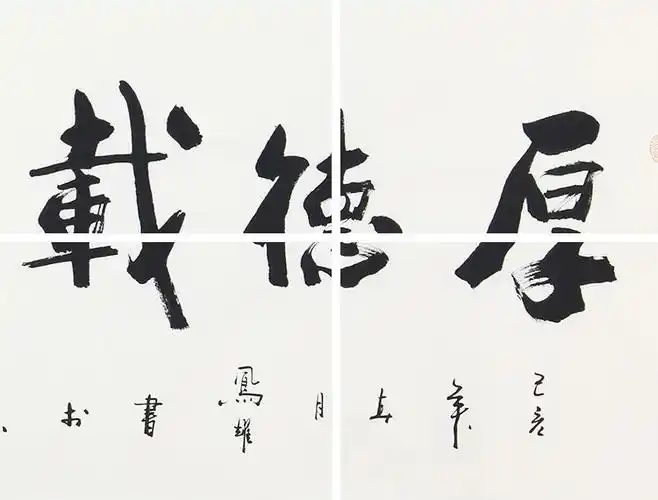 厚德載
己亥年
月鳳耀書於